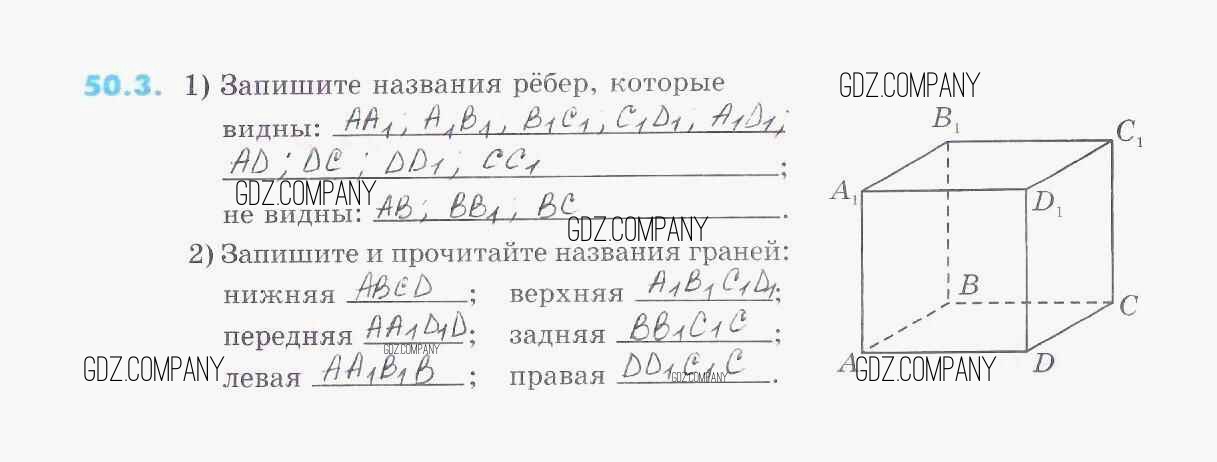 50.3. 1) Запишите названия рёбер, которые
видны: AA₁; A₁B₁, B₁C₁, C₁D₁, A₁D₁;
AD; DC; DD₁; CC₁;
GDZ.COMPANY
не видны: AB; BB₁; BC.
GDZ.COMPANY
2) Запишите и прочитайте названия граней:
нижняя ABCD; верхняя A₁B₁C₁D₁;
передняя AA₁D₁D; задняя BB₁C₁C;
GDZ.COMPANY
левая AA₁B₁B; правая DD₁C₁C.
GDZ.COMPANY
GDZ.COMPANY
GDZ.COMPANY
B₁
C₁
A₁
D₁
B
C
A
D
GDZ.COMPANY